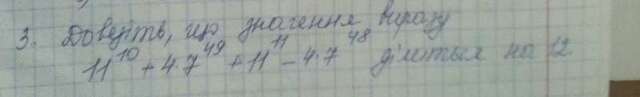 3. Доведіть, що значення виразу
11^10 + 4·7^49 + 11^11 − 4·7^48 ділиться на 12